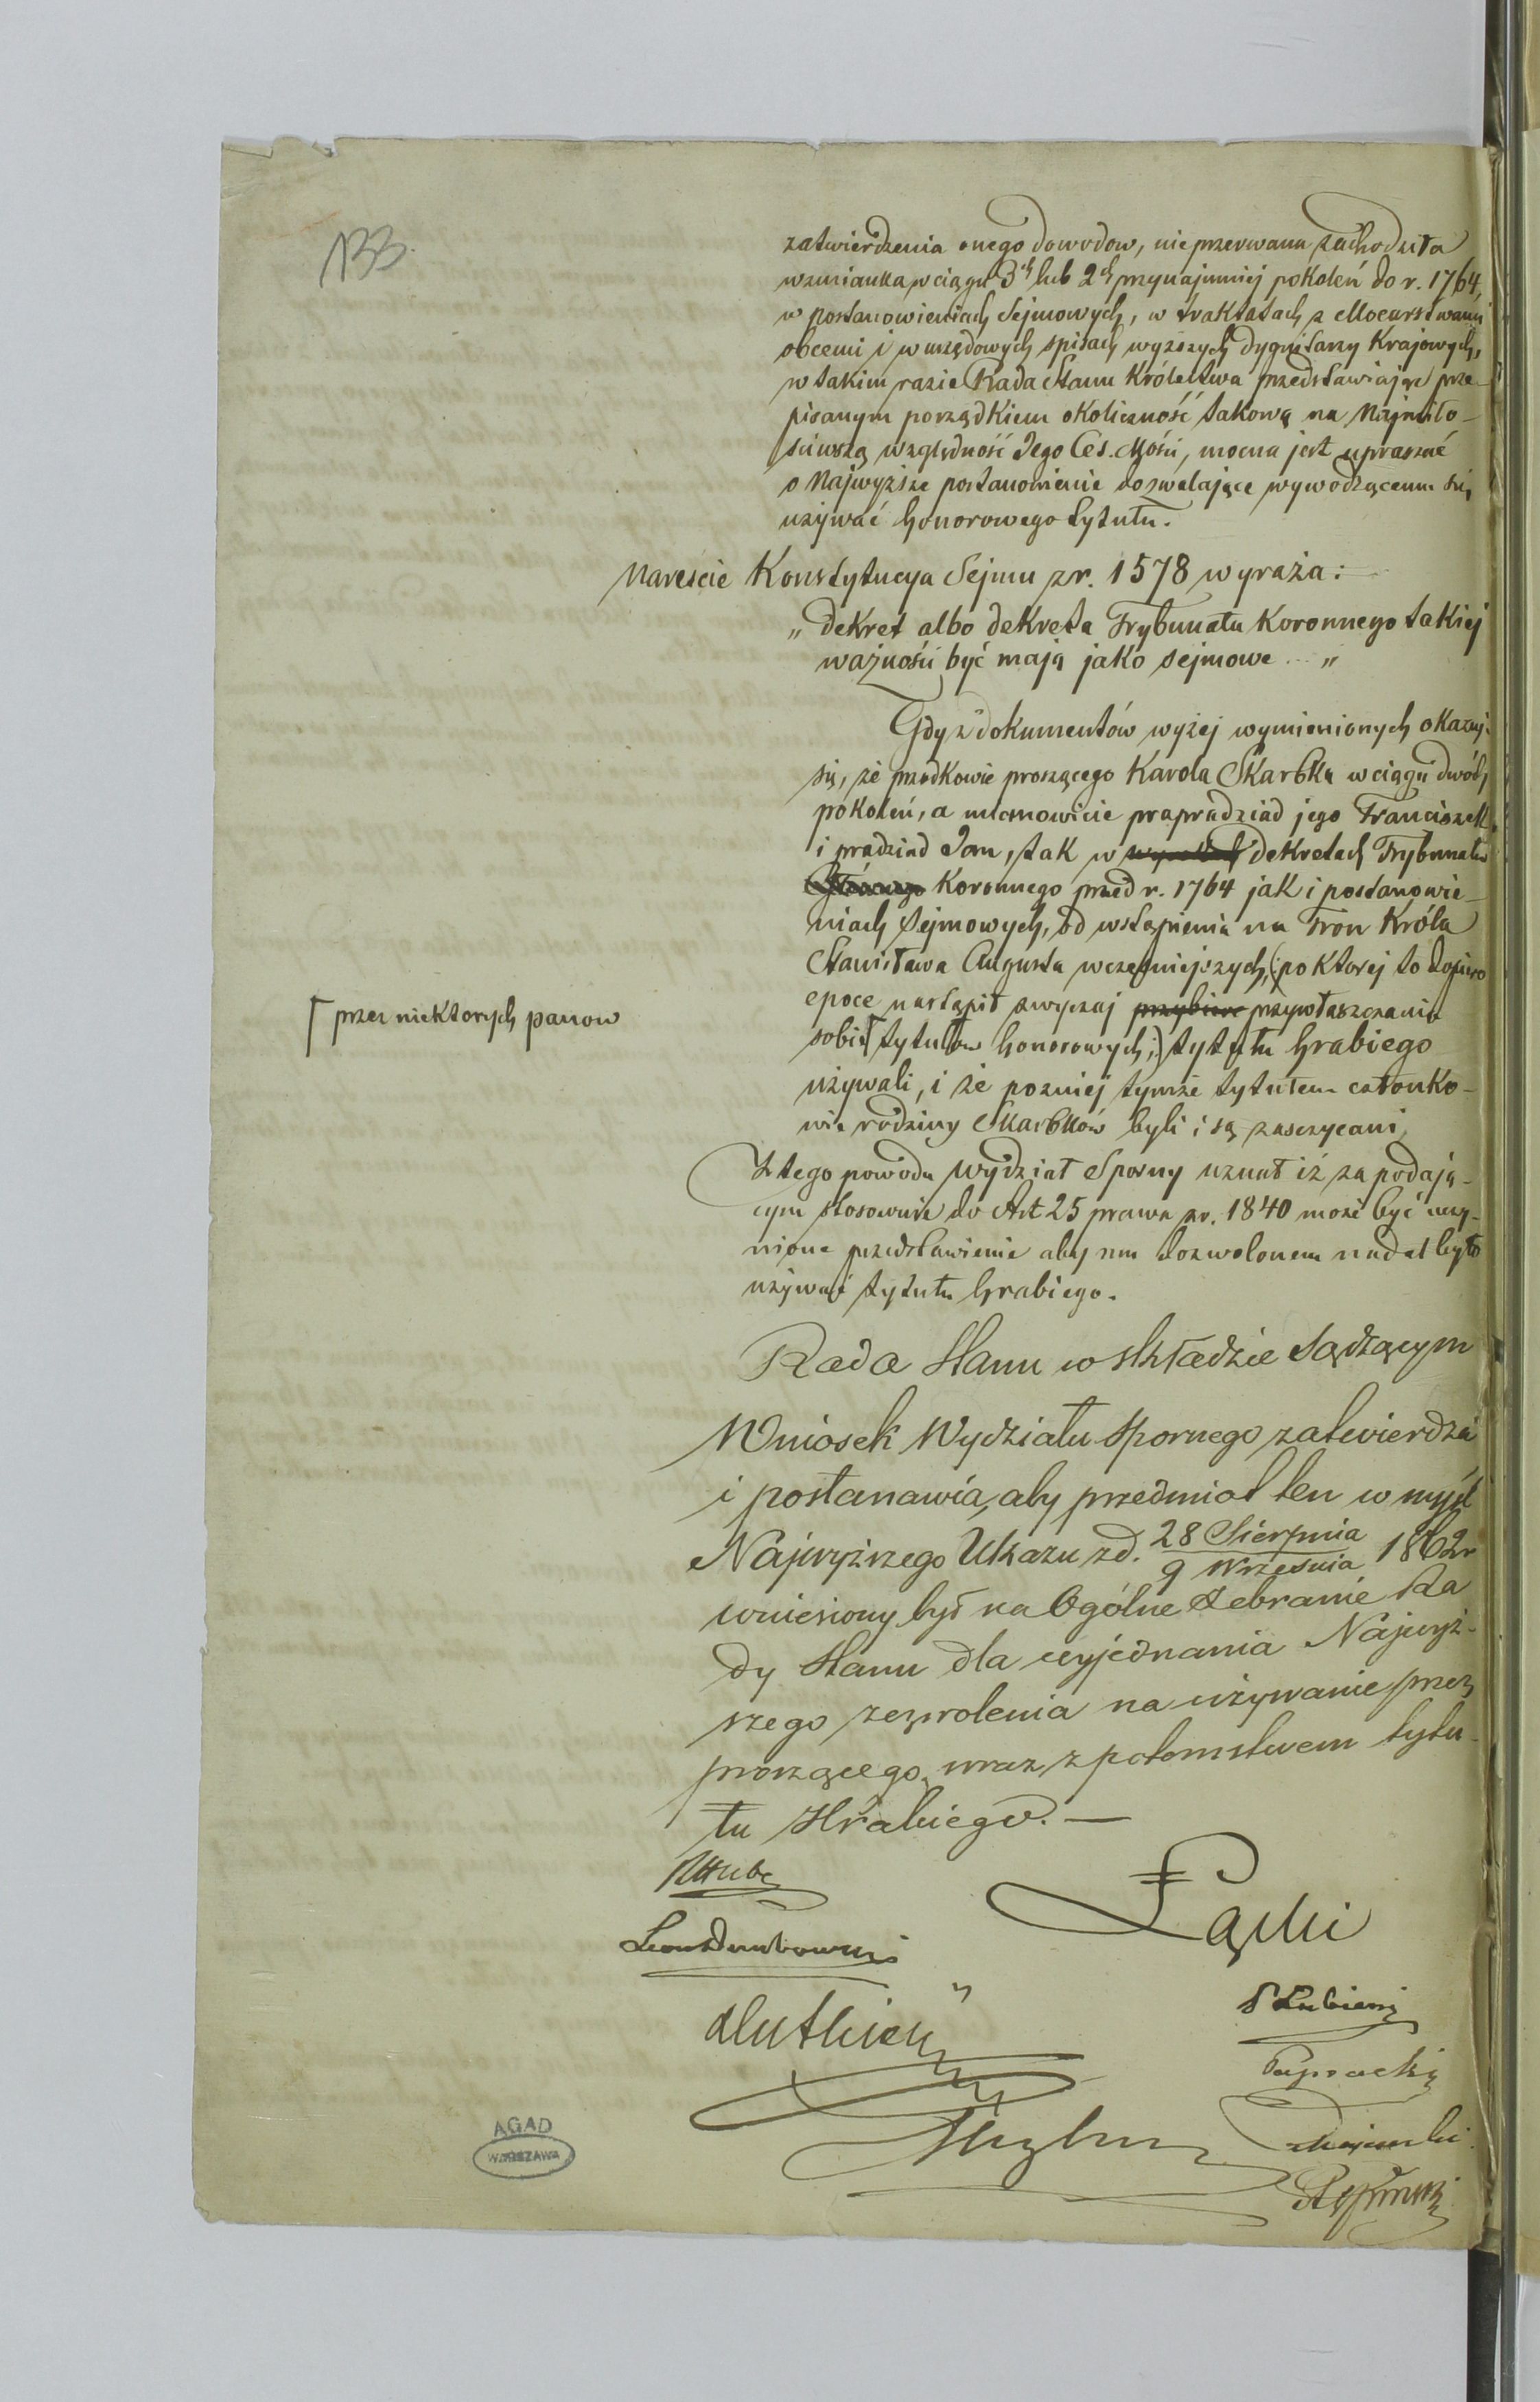 133.
zatwierdzenia onego dowodow, nieprzerwana zachodziła
wzmianka w ciągu 3ch lub 2ch przynajmniej pokoleń do r. 1764,
w postanowieniach Sejmowych, w traktatach z Mocarstwami
obcemi i w urzędowych spisach wyższych dygnitarzy Krajowych,
w takim razie Rada Stanu Królestwa przedstawiając prze-
pisanym porządkiem okoliczność takową na Najmiło-
ściwszą względność Jego Ces. Mości, mocna jest upraszać
o Najwyższe postanowienie dozwalające wywodzącemu się
używać honorowego tytułu.
Nareście Konstytucya Sejmu z r. 1578 wyraża:
„dekret albo dekreta Trybunału Koronnego takiej
ważności być mają jako sejmowe ... „
Gdy z dokumentów wyżej wymienionych okazuje
się, że przodkowie proszącego Karola Skarbka w ciągu dwóch
pokoleń, a mianowicie prapradziad jego Franciszek
i pradziad Jan, tak w wyrokach dekretach Trybunału
Głównego Koronnego przed r. 1764 jak i postanowie-
niach Sejmowych, od wstąpienia na Tron Króla
Stanisława Augusta wcześniejszych, (po ktorej to dopiero
epoce nastąpił zwyczaj przybier przywłaszczania
sobie ⌈ tytułow honorowych;) tytułu hrabiego
⌈ przez niektorych panow
używali, i że pozniej tymże tytułem członko-
wie rodziny Skarbków byli i są zaszczycani,
Z tego powodu Wydział Sporny uznał iż za podają-
cym stosownie do Art 25 prawa z r. 1840 może być uczy-
nione przedstawienie aby mu dozwolonem nadal było
używać tytułu hrabiego.
Rada Stanu w składzie Sądzącym
Wniosek Wydziału Spornego zatwierdza
i postanawia, aby przedmiot ten w myśl
Najwyższego Ukazu z d. 28 Sierpnia / 9 Września 1862 r
wniesiony był na Ogólne Zebranie Ra
dy Stanu dla wyjednania Najwyż-
szego zezwolenia na używanie przez
proszącego, wraz z potomstwem tytu-
łu Hrabiego. —
RHube
Łąski
Leon Dembowski
S Łubieński
Paprocki
AGAD
WARSZAWA